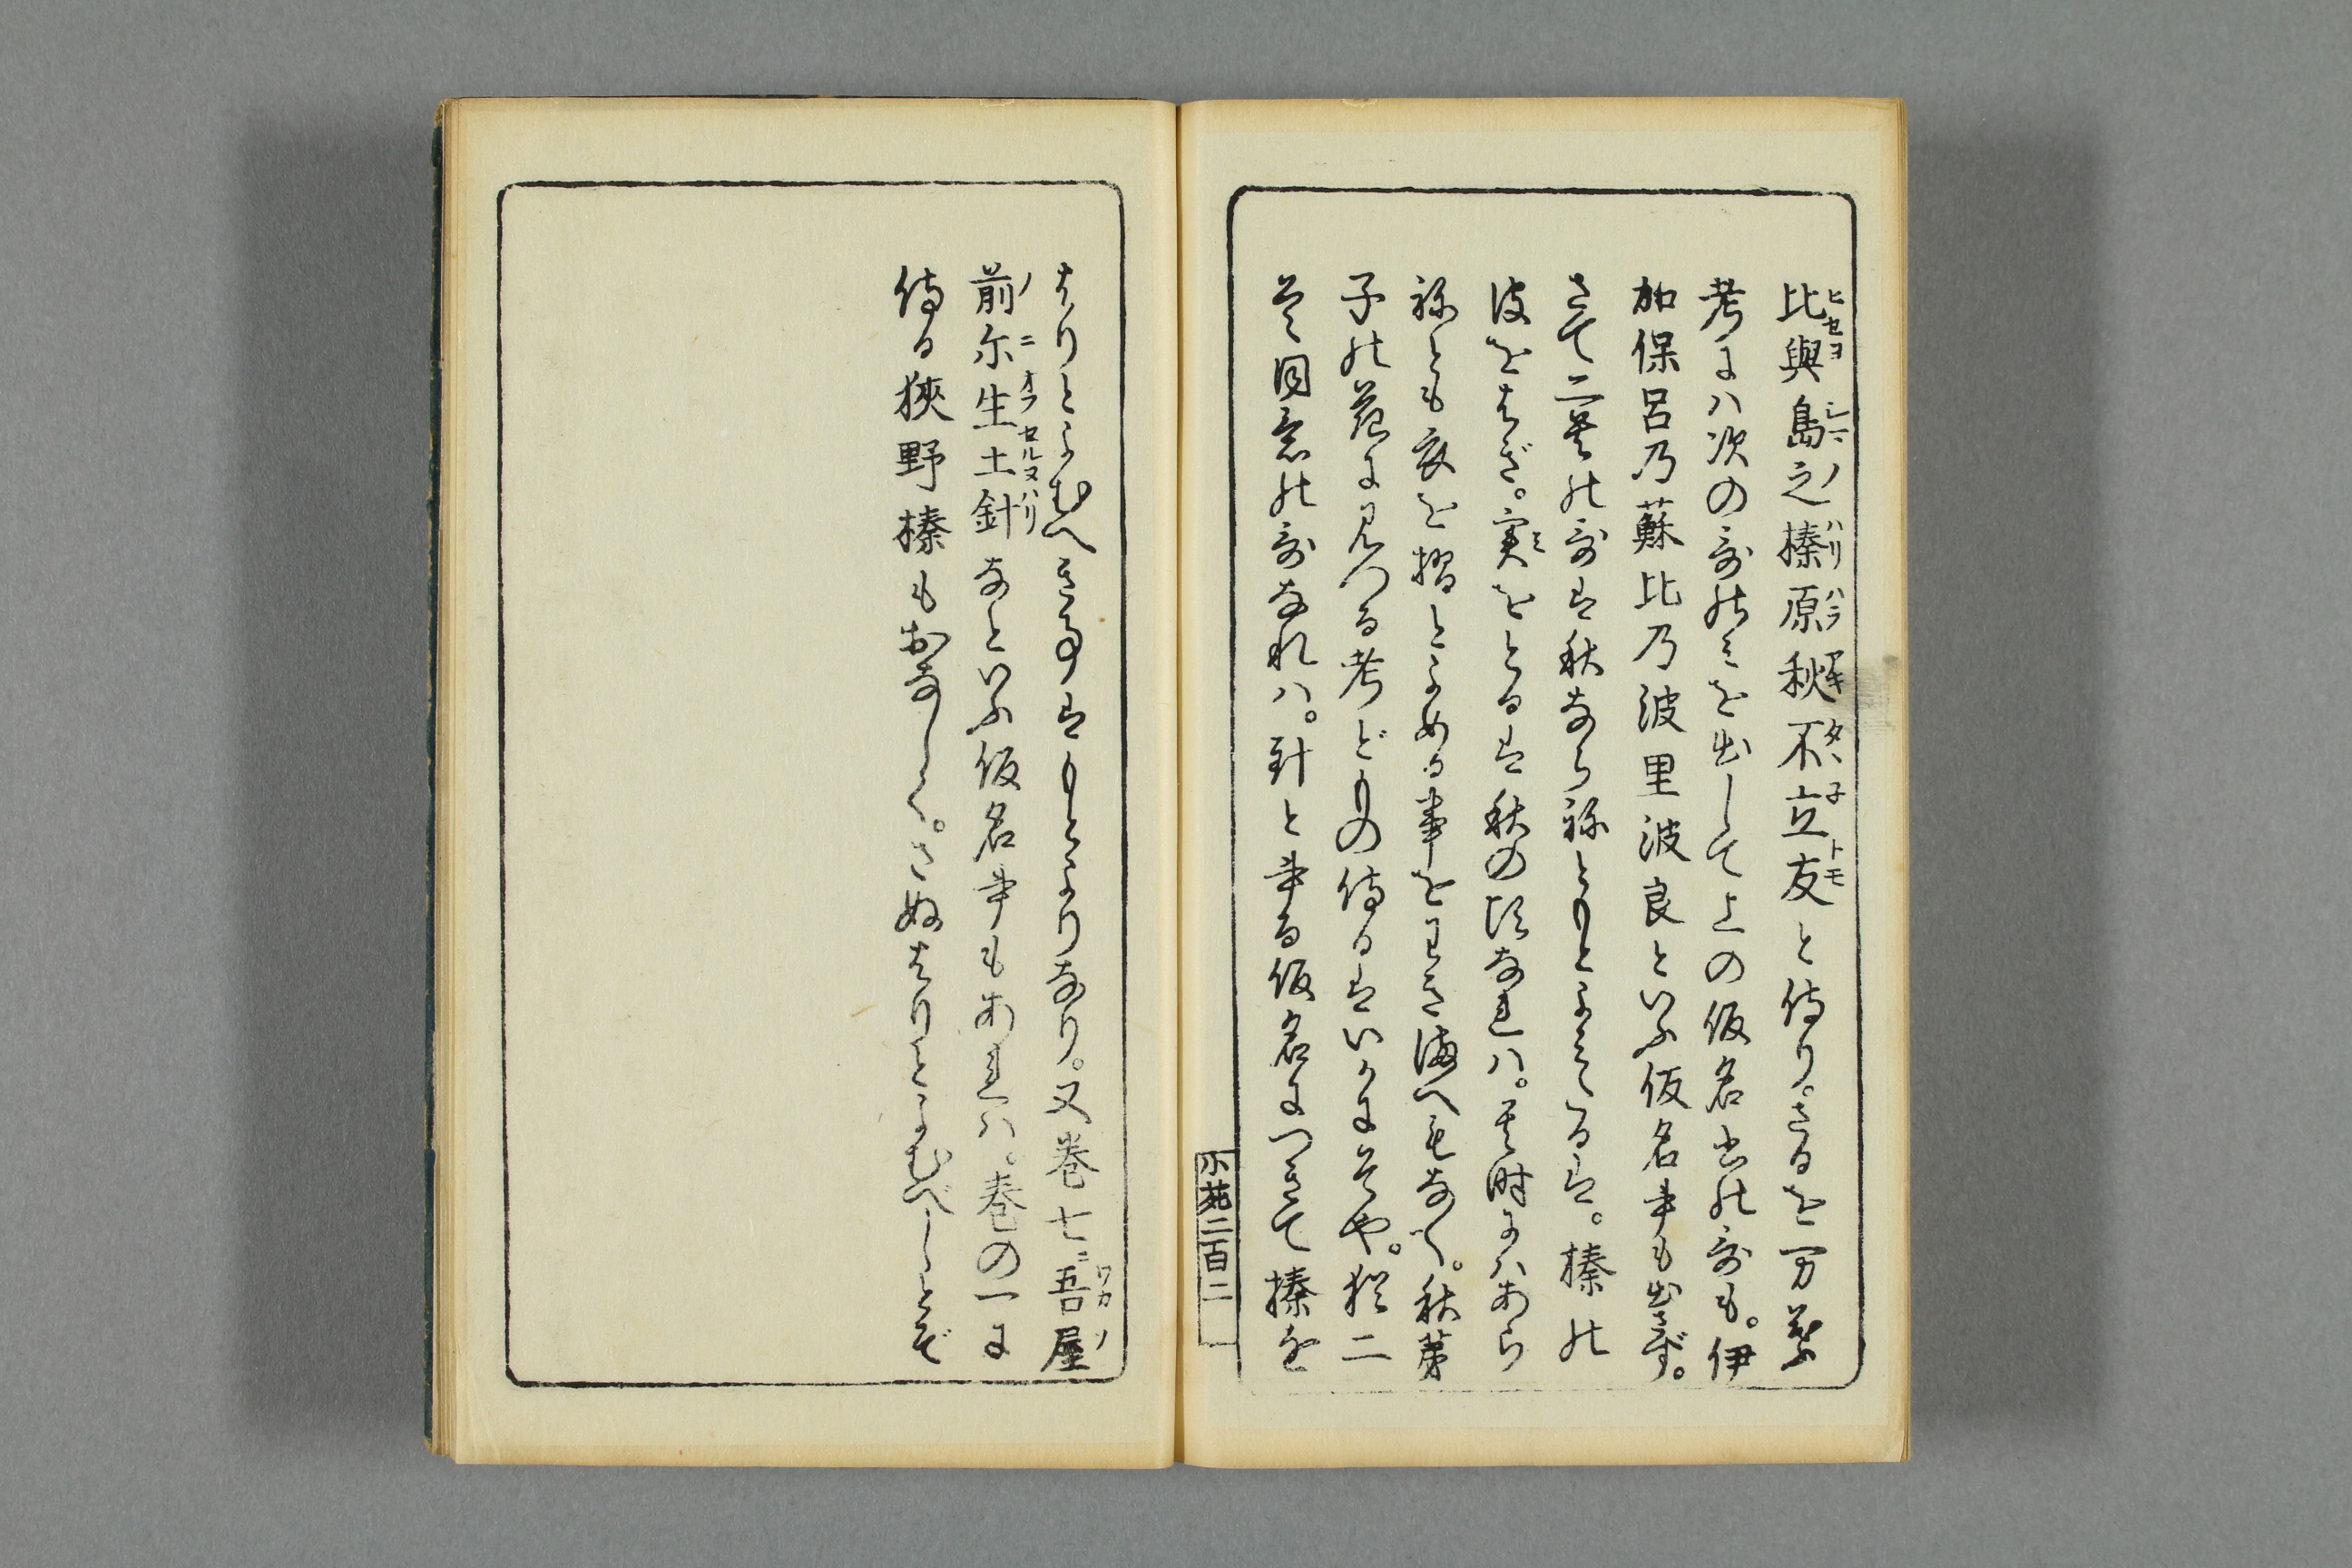 比與島之榛原秋不立友と侍り。さるを万葉
考にハ次の哥のミを出して上の仮名書の哥も。伊
加保呂乃蘇比乃波里波良といふ仮名書も出さず。
さて二首の哥は秋ならねともとよミたるは。榛の
皮をはぎ。実をとるは秋の頃なれハ。其時にハあら
ねとも衣を摺とよめる事をわきまへもなく。秋芽
子の花に見つる考どもの侍るはいかにそや。猶二
首同意の哥なれハ。針と書る仮名につきて榛を
はりとよむへき事はもとよりなり。又巻七ニ吾屋
前尓生土針なといふ仮名書もあれハ。巻の一に
侍る狭野榛もおなしく。さぬはりとよむべしとぞ